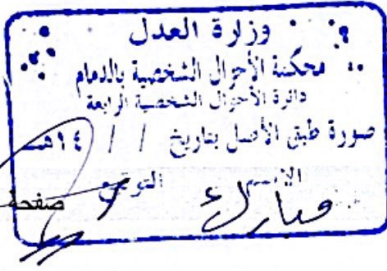 وزارة العدل
محكمة الأحوال الشخصية بالدمام
دائرة الأحوال الشخصية الرابعة
صورة طبق الأصل بتاريخ / / ١٤هـ
الإسم التوقيع
مبارك صفحة